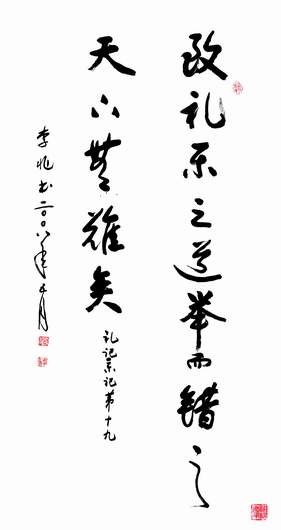 致礼乐之道举而错之
天下無難矣
礼记乐记第十九
李兆书二〇〇八年十月